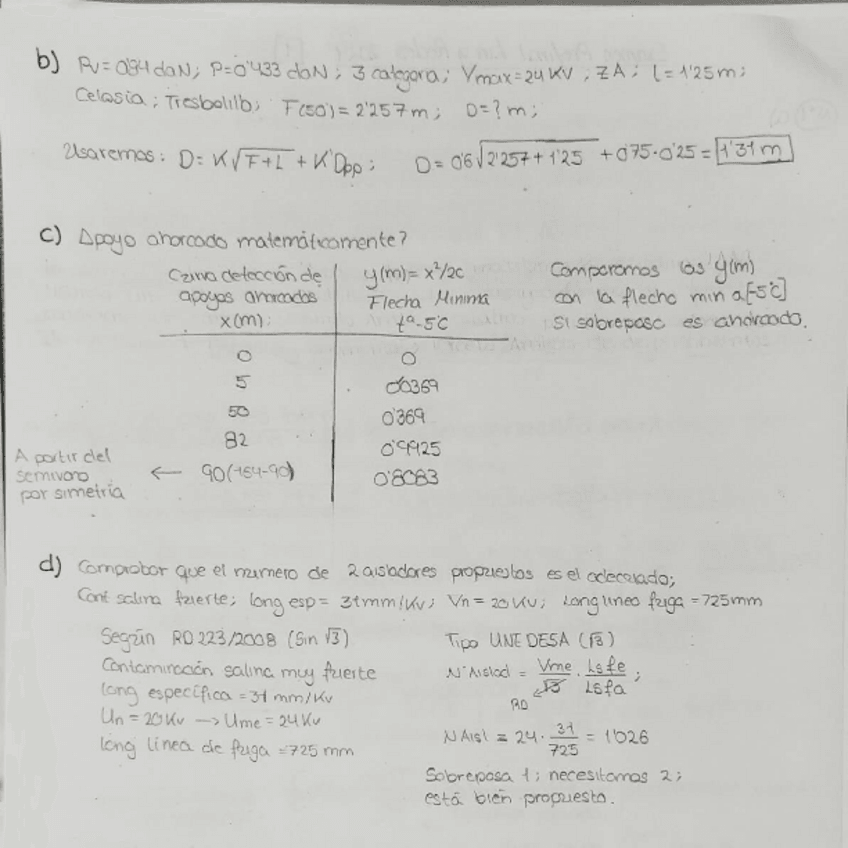 b) Pv=0'84 daN; P=0'433 daN; 3 categora; Vmax=24KV; ZA; l=1'25m;
Celosia; Tresbolillo; F(50)=2'257m; D=? m;
Usaremos: D= K√F+L + K'Dpp; D=0'6√2'257+1'25 + 0'75·0'25= 1'31 m
c) Apoyo ahorcado matemáticamente?
Curva detección de apoyos ahorcados x(m):
y(m)= x²/2c Flecha Minima tª-5ºC
Comparamos los y(m)
con la flecha min a[-5ºC]
si sobrepasa es ahorcado.
0 0
5 0'00369
50 0'369
82 0'9925
A partir del semivano por simetría ← 90(164-90) 0'8083
d) Comprobar que el numero de 2 aisladores propuestos es el adecuado;
Cont salina fuerte; long esp= 31mm/Kv; Vn=20Kv; Long linea fuga=725mm
Según RD 223/2008 (Sin √3)
Contaminación salina muy fuerte
long específica=31 mm/Kv
Un=20Kv → Ume=24Kv
long línea de fuga=725 mm
Tipo UNE DESA (√3)
NºAislad = Vme/√3 · Lsfe/Lsfa;
RD
NAisl = 24· 31/725 = 1'026
Sobrepasa 1; necesitamos 2;
está bien propuesto.